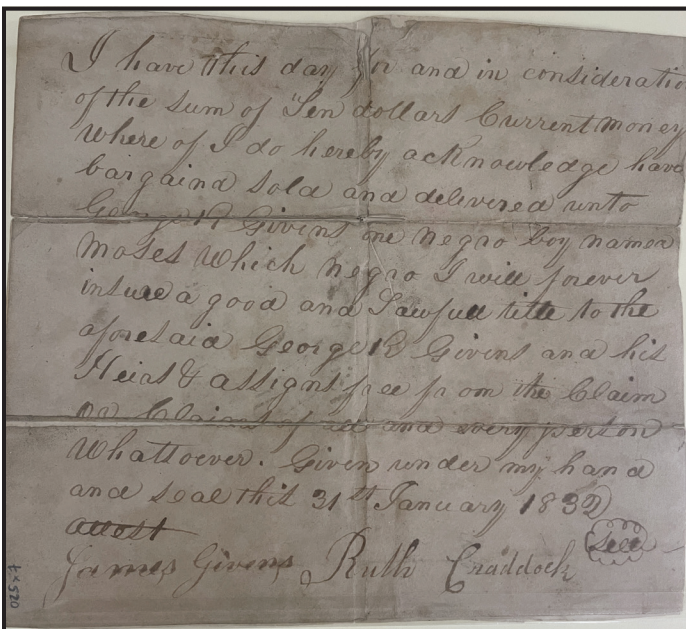 I have this day for and in consideratio
of the sum of Ten dollars Current money
where of I do hereby acknowledge have
bargaind sold and delivered unto
George R Givens one negro boy named
Moses which negro I will forever
insure a good and Lawfull title to the
aforesaid George R Givens and his
Heirs & assigns free from the Claim
or Claims of all and every person
Whatsoever. Given under my hand
and seal this 31st January 1832
attest
James Givens Ruth Craddock Seal